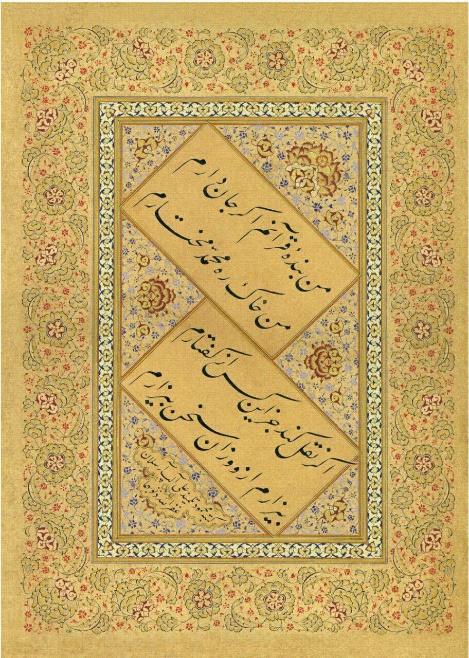 من بنده قرآنم اگر جان دارم
من خاک ره محمد مختارم
اگر نقل کند جز این کس از گفتارم
بیزارم ازو وزان سخن بیزارم